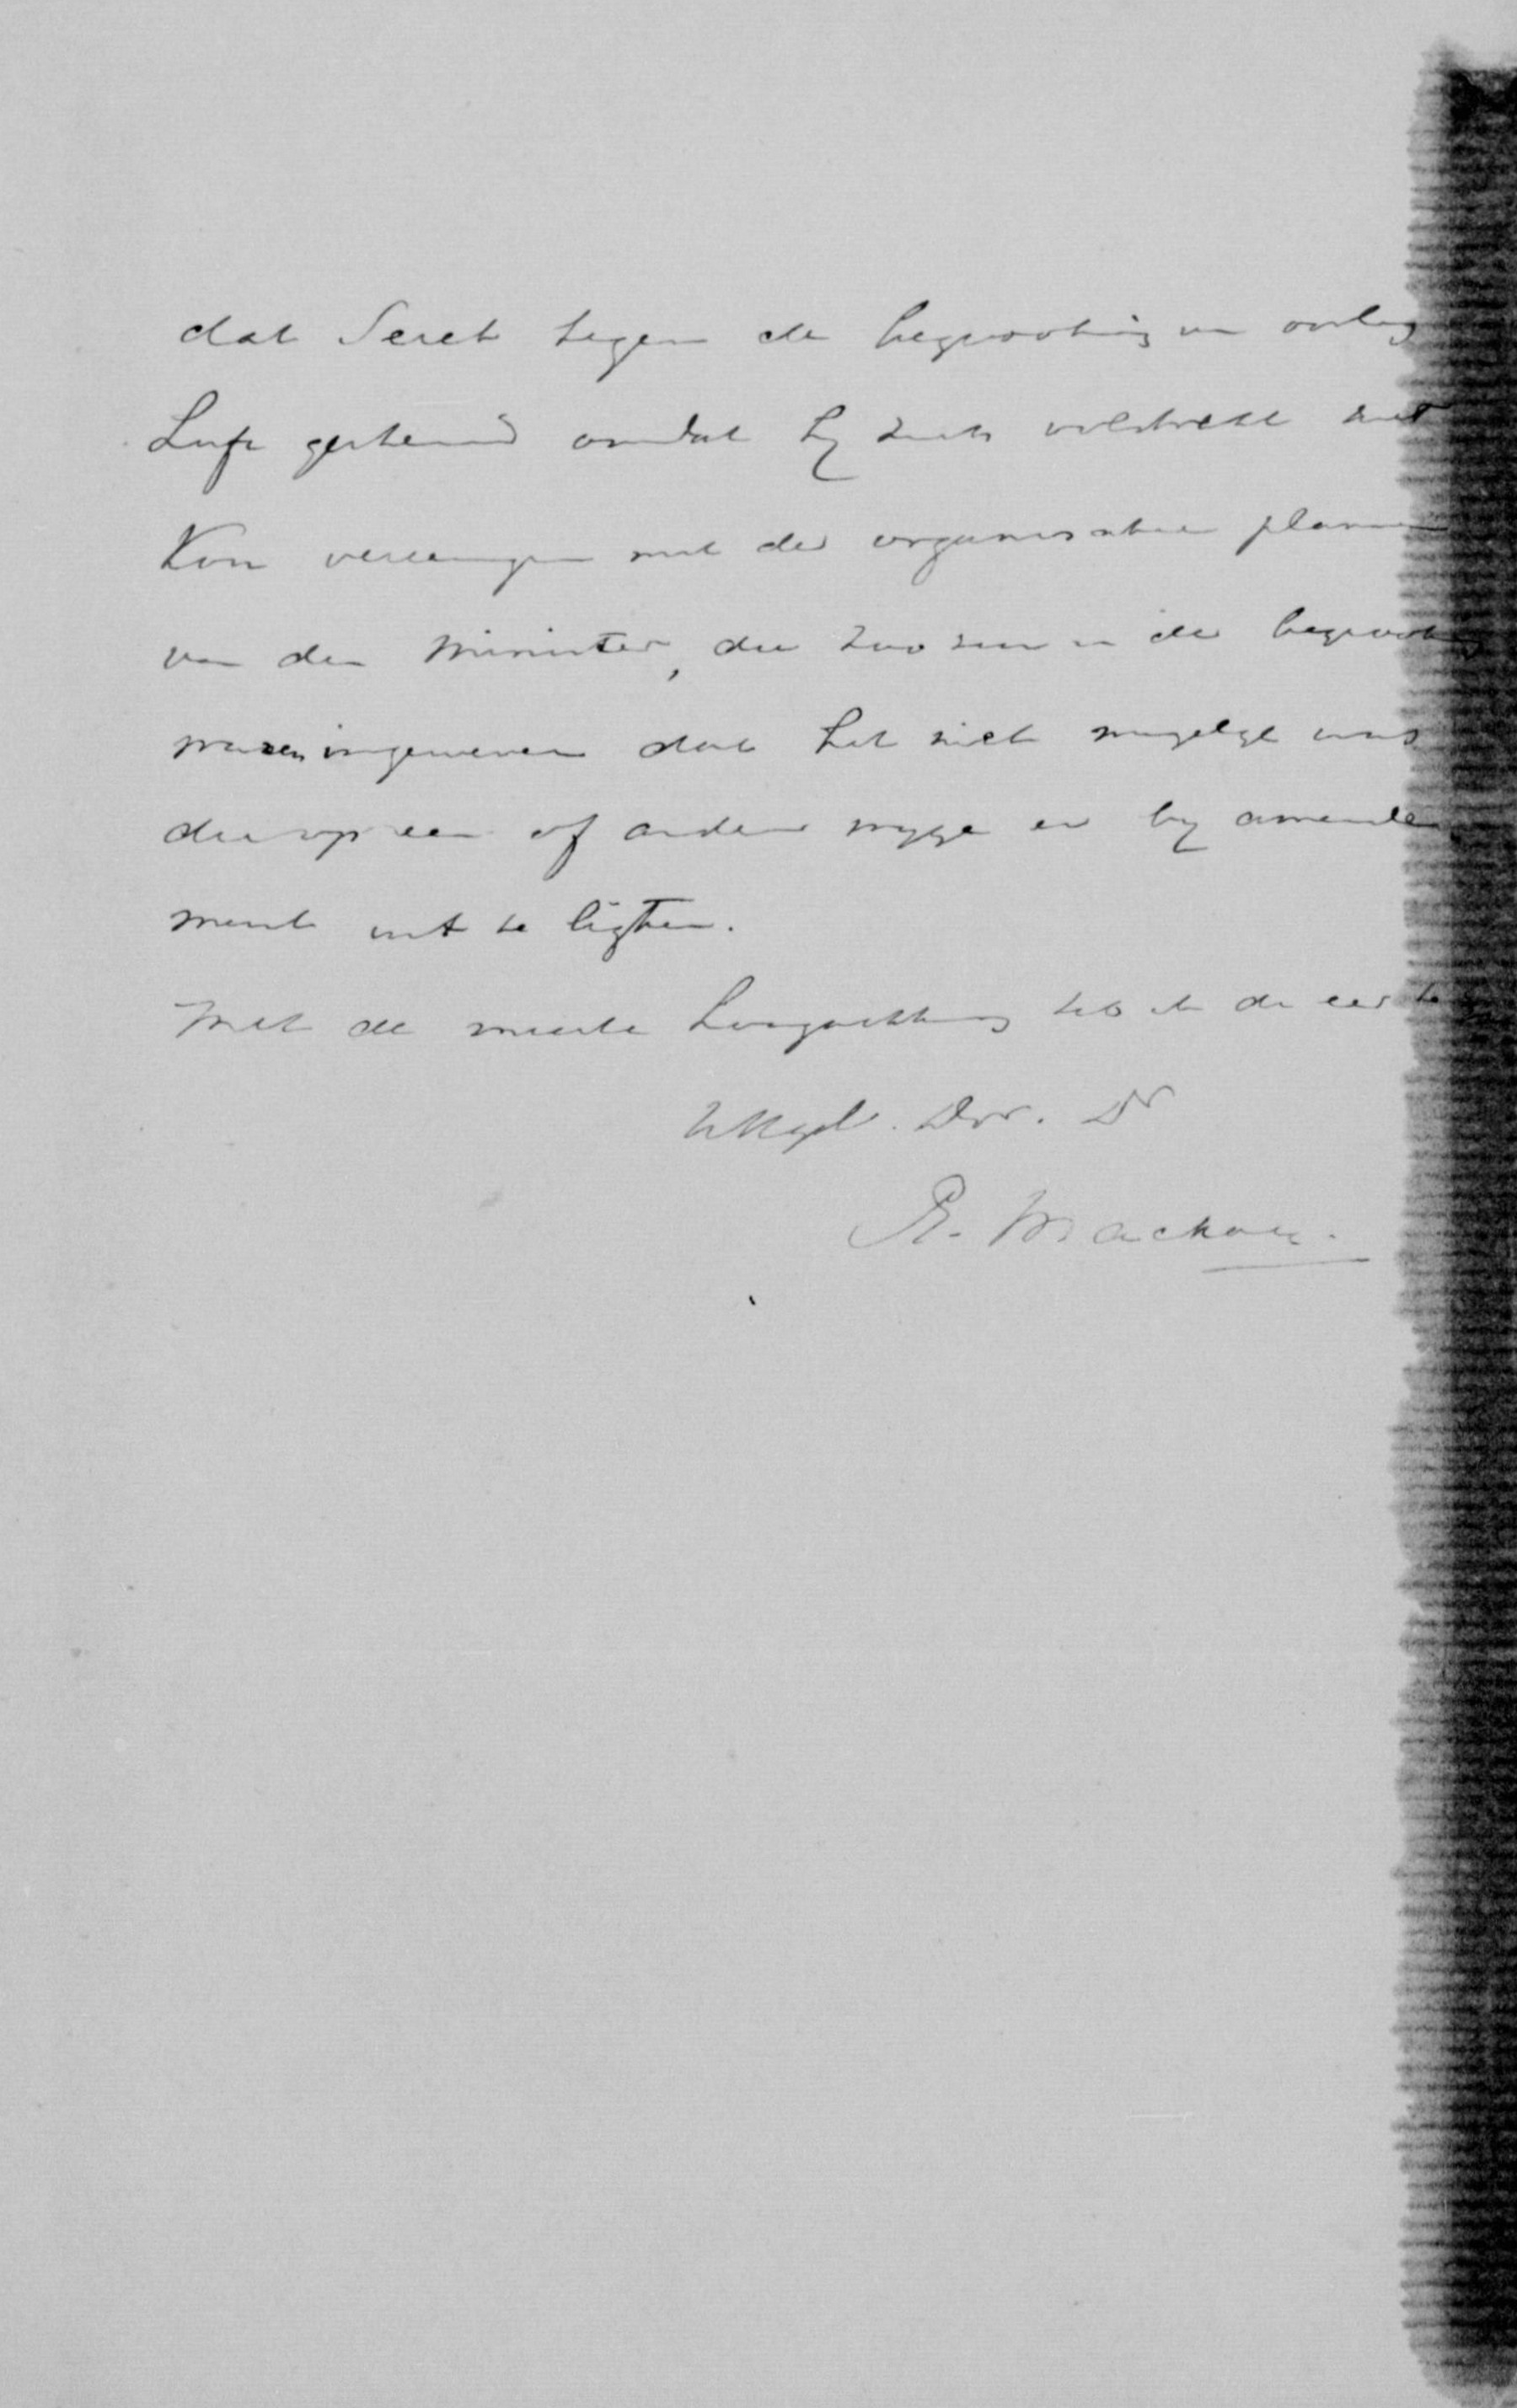 dat Seret tegen de begrooting van oorlog
heeft gestemd omdat hy zich volstrekt niet
Kon vereenigen met de organisatie plannen
van den Minister, die zoo zeer in de begrooting
waren ingeweven dat het niet mogelyk was
die op een of andere wyze er by amende
ment uit te ligten.
Met de meeste hoogachting heb ik de eer te
UHEdgel. Dw. Dr
E. Mackay.